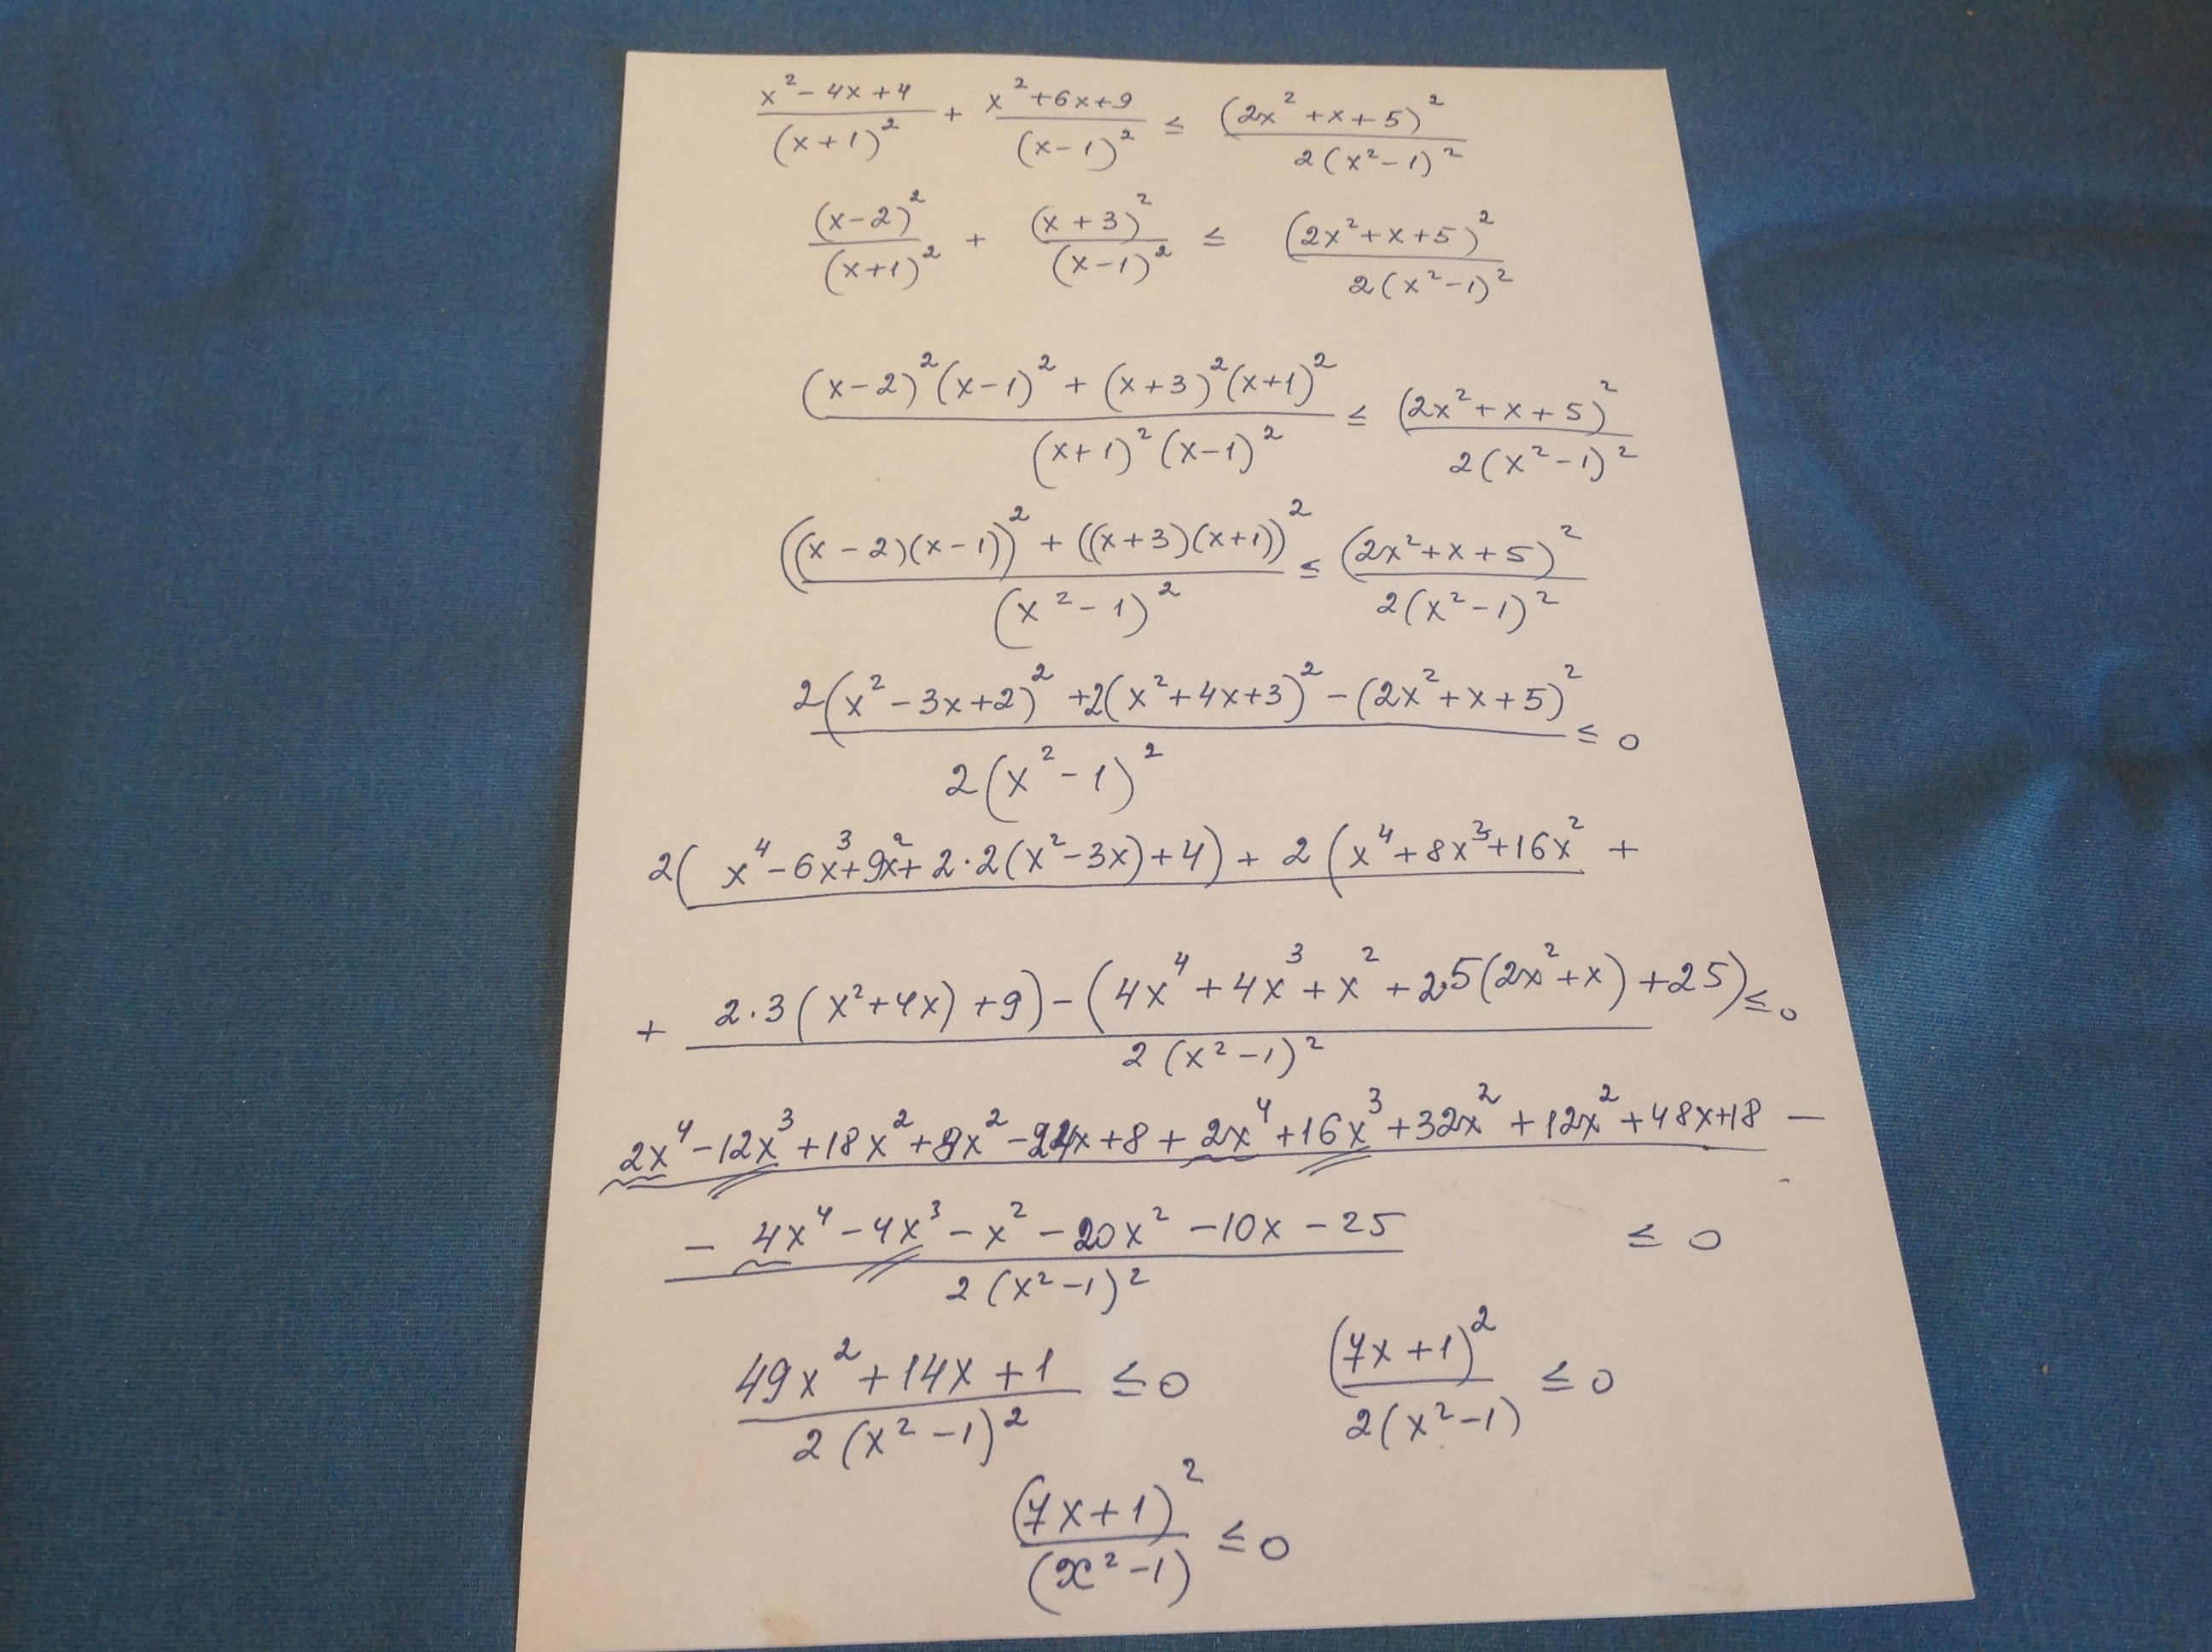 (x²-4x+4)/(x+1)² + (x²+6x+9)/(x-1)² ≤ (2x²+x+5)²/2(x²-1)²
(x-2)²/(x+1)² + (x+3)²/(x-1)² ≤ (2x²+x+5)²/2(x²-1)²
((x-2)²(x-1)² + (x+3)²(x+1)²)/((x+1)²(x-1)²) ≤ (2x²+x+5)²/2(x²-1)²
(((x-2)(x-1))² + ((x+3)(x+1))²)/(x²-1)² ≤ (2x²+x+5)²/2(x²-1)²
(2(x²-3x+2)² +2(x²+4x+3)² - (2x²+x+5)²)/2(x²-1)² ≤ 0
2(x⁴-6x³+9x²+2·2(x²-3x)+4) + 2(x⁴+8x³+16x² +
+ (2·3(x²+4x)+9) - (4x⁴+4x³+x²+2·5(2x²+x)+25) ≤ 0
2(x²-1)²
2x⁴-12x³+18x²+8x²-24x+8+2x⁴+16x³+32x²+12x²+48x+18 -
- 4x⁴-4x³-x²-20x²-10x-25 ≤ 0
2(x²-1)²
(49x²+14x+1)/2(x²-1)² ≤ 0 (7x+1)²/2(x²-1) ≤ 0
(7x+1)²/(x²-1) ≤ 0